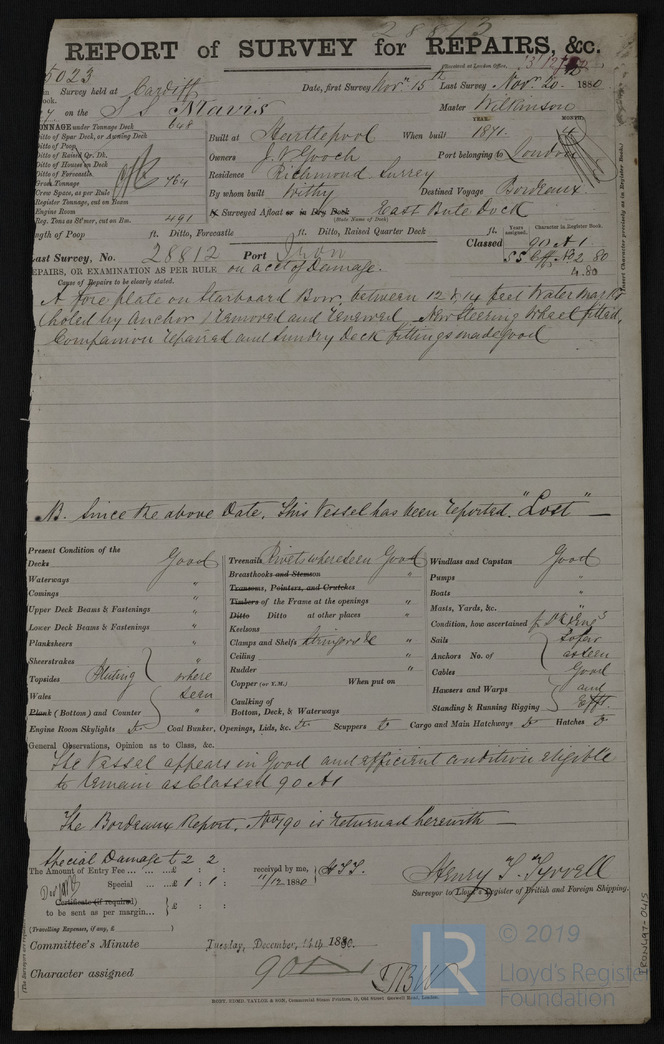 28813
REPORT of SURVEY for REPAIRS, &c.
(Received at London Office,
5023
Survey held at Cardiff Date, first Survey Novr 15th Last Survey Novr 20 1880
on the S S Mavis Master Wilkinson
TONNAGE under Tonnage Deck 648
Ditto of Spar Deck, or Awning Deck
Ditto of Poop
Ditto of Raised Qr. Dk.
Ditto of Houses on Deck
Ditto of Forecastle
Gross Tonnage 764
Crew Space, as per Rule
Register Tonnage, cut on Room
Engine Room
Reg. Tons as St'mer, cut on Bm. 491
YEAR. MONTH.
Built at Hartlepool When built 1871. 4
Owners J. V. Gooch Port belonging to London
Residence Richmond Surrey
By whom built Withy Destined Voyage Bordeaux
If Surveyed Afloat or in Dry Dock East Bute Dock
(State Name of Dock.)
Length of Poop ft. Ditto, Forecastle ft. Ditto, Raised Quarter Deck ft.
Years assigned. Character in Register Book.
Last Survey, No. 28812 Port Iron Classed 90 A1
4.80
REPAIRS, OR EXAMINATION AS PER RULE on acct of Damage.
Cause of Repairs to be clearly stated.
(Insert Character precisely as in Register Book.)
A fore plate on Starboard Bow, between 12 & 14 feet Water marks
(holed by Anchor) removed and renewed, New Steering Wheel fitted,
Companion repaired and Sundry Deck fittings made good
NB. Since the above Date, this Vessel has been reported "Lost" —
Present Condition of the
Decks Good
Waterways "
Comings "
Upper Deck Beams & Fastenings "
Lower Deck Beams & Fastenings "
Planksheers "
Sheerstrakes "
Topsides Plating where
Wales seen
Plank (Bottom) and Counter "
Engine Room Skylights do Coal Bunker, Openings, Lids, &c. do Scuppers do Cargo and Main Hatchways do Hatches do
Treenails Rivets where seen Good
Breasthooks and Stemson "
Transoms, Pointers, and Crutches
Timbers of the Frame at the openings "
Ditto Ditto at other places "
Keelsons "
Clamps and Shelfs Stringers &c "
Ceiling "
Rudder "
Copper (or Y.M.) When put on
Caulking of
Bottom, Deck, & Waterways
Windlass and Capstan Good
Pumps "
Boats "
Masts, Yards, &c. "
Condition, how ascertained
Sails So far
Anchors No. of as seen
Cables Good
Hawsers and Warps and
Standing & Running Rigging Efft.
General Observations, Opinion as to Class, &c.
The Vessel appears in Good and efficient condition eligible
to remain as Classed 90 A1
The Bordeaux Report, No 190 is returned herewith —
Special Damage £ 2 2
The Amount of Entry Fee £ : : received by me,
Special £ 1 : 1 : 11/12 1880
Certificate (if required) £ : :
to be sent as per margin
(Travelling Expenses, if any, £ )
Henry T. Tyrrell
Surveyor to Lloyd's Register of British and Foreign Shipping.
Committee's Minute Tuesday, December, 14th 1880.
Character assigned 90 A1
TBW
ROBT. EDMD. TAYLOR & SON, Commercial Steam Printers, 19, Old Street, Goswell Road, London.
© 2019
LR
Lloyd's Register
Foundation
IRON697-0415